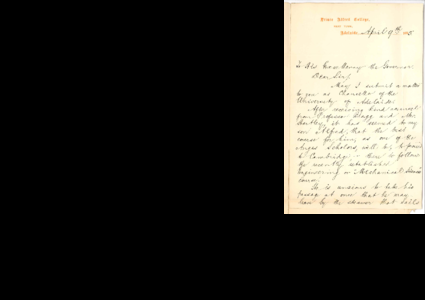 Prince Alfred College,
Adelaide, April 9th
To His Excellency the Governor
Dear Sir,
May I submit a matter
to you as Chancellor of the
University of Adelaide
After receiving kind
from Professor Bragg and Mr.
it has seemed to my
son Alfred, that the best
course for him, as one of the
Angas Scholars, will be to proceed
to Cambridge - there to follow
the recently established
Engineering or Mechanical Science
course.
He is anxious to take his
passage at once that he may
leave by the steamer that sails